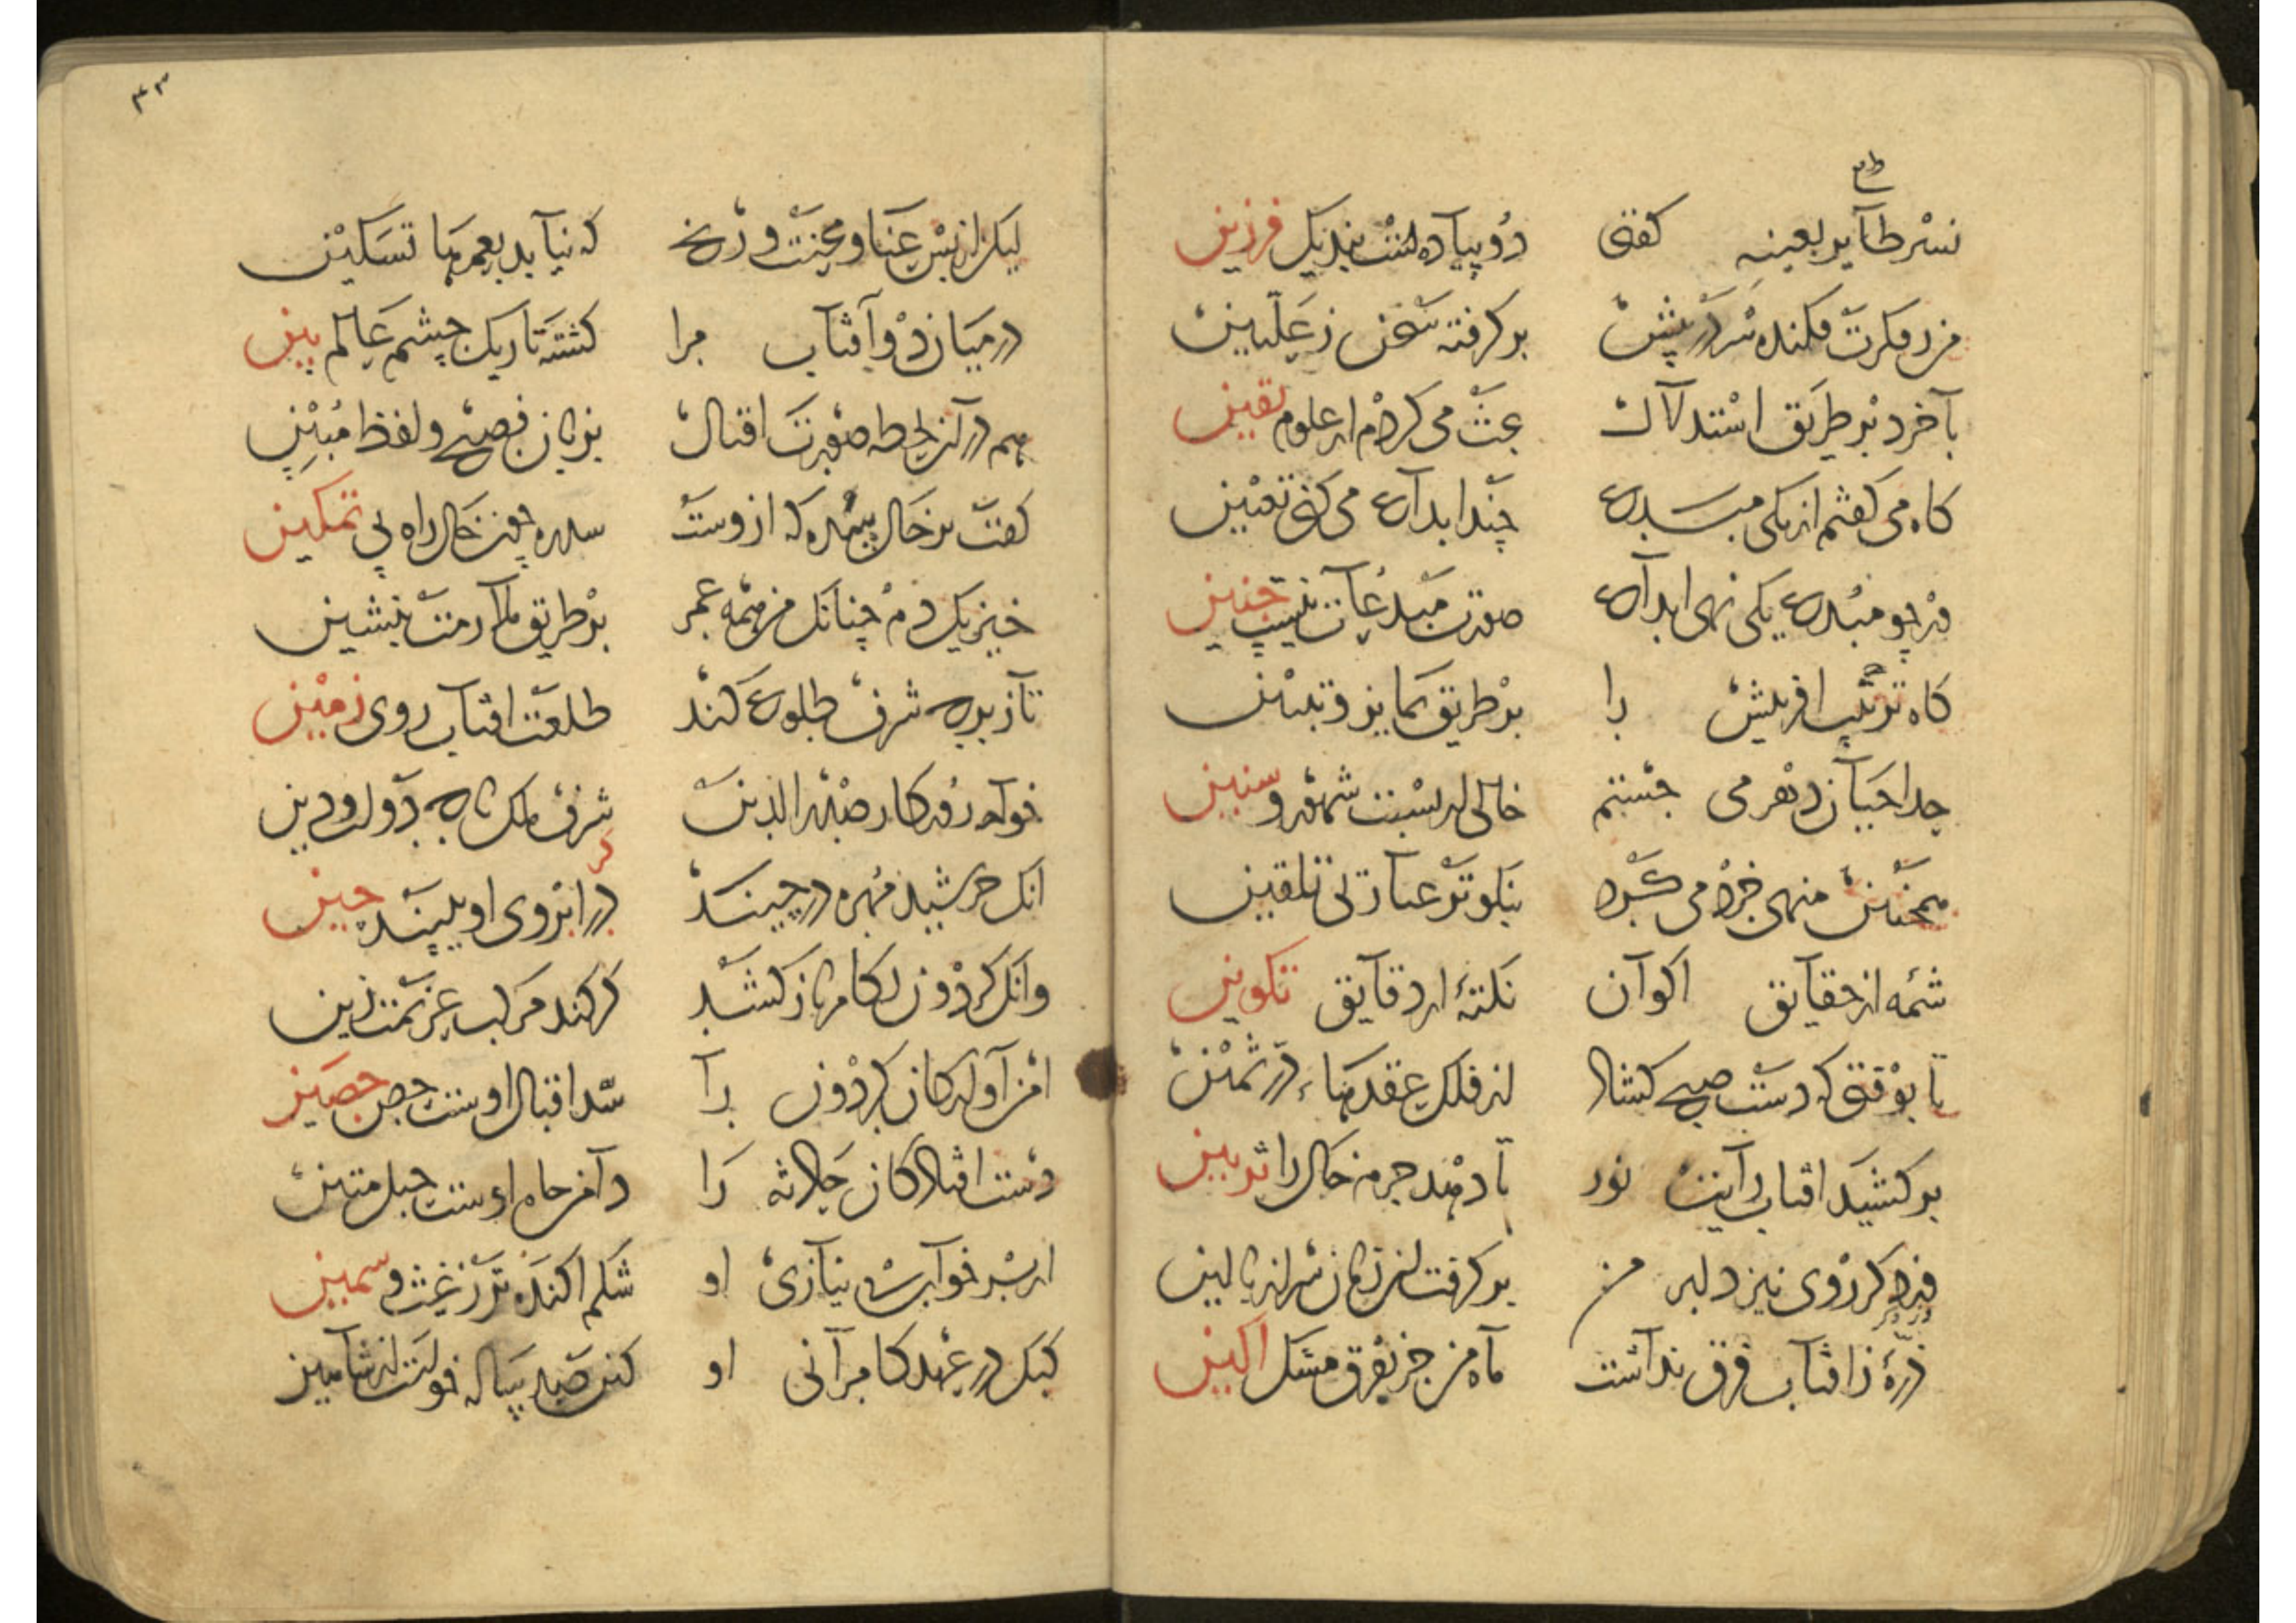 ط
نسر طایر بعینه کفتی دو پیاده است بند یک فرزین
من ز فکرت فکنده سر در پیش بر کرفته سخن ز علیین
با خرد بر طریق استدلال بحث می کردم از علوم یقین
کاه می کفتم از یکی مبدع چند ابداع می کنی تعیین
در چو مبدع یکی نهی ابداع صورت مبدعات نیست چنین
کاه ترتیب افرینش را بر طریق تمایز و تبیین
جدا احیان دهر می جستم خالی از نسبت شهور و سنین
همچنین منهی خرد می کرد نیکوتر عبارتی تلقین
شمه از حقایق اکوان نکته از دقایق تکوین
تا بوقتی که دست صبح کشاد از فلک عقدهاء در ثمین
بر کشید افتاب رایت نور تا دهد جرم خاک را تزیین
من بر کرفت از زمان سر از بالین
ذره ز افتاب فرق نداشت ماه من جز بفرق مشک اکین
۴۳
لیکن از بس عنا و محنت و رنج که نیاید بعمرها تسکین
در میان دو افتاب مرا کشته تاریک چشم عالم بین
هم در آن لحظه صورت اقبال بزبان فصیح و لفظ مبین
کفت بر خال که از وست راه بی تمکین
خیز یک دم چنانک من همه عمر بر طریق ملازمت بنشین
تا ز برج شرف طلوع کند طلعت افتاب روی زمین
خواجه روزکار صدر الدین شرف ملک تاج دولت و دین
انک خرشید مهره در چیند کر در ابروی او ببیند چین
وانک کردون لکام باز کشد کر کند مرکب عزیمت زین
امن اولاد کان کردون را سد اقبال اوست حصن حصین
دست افتادکان حادثه را دامن جاه اوست حبل متین
از سر خوان بی نیازی او شکم اکنده تر ز غث و سمین
کبک در عهد کامرانی او کند صد پیاله خون از شاهین